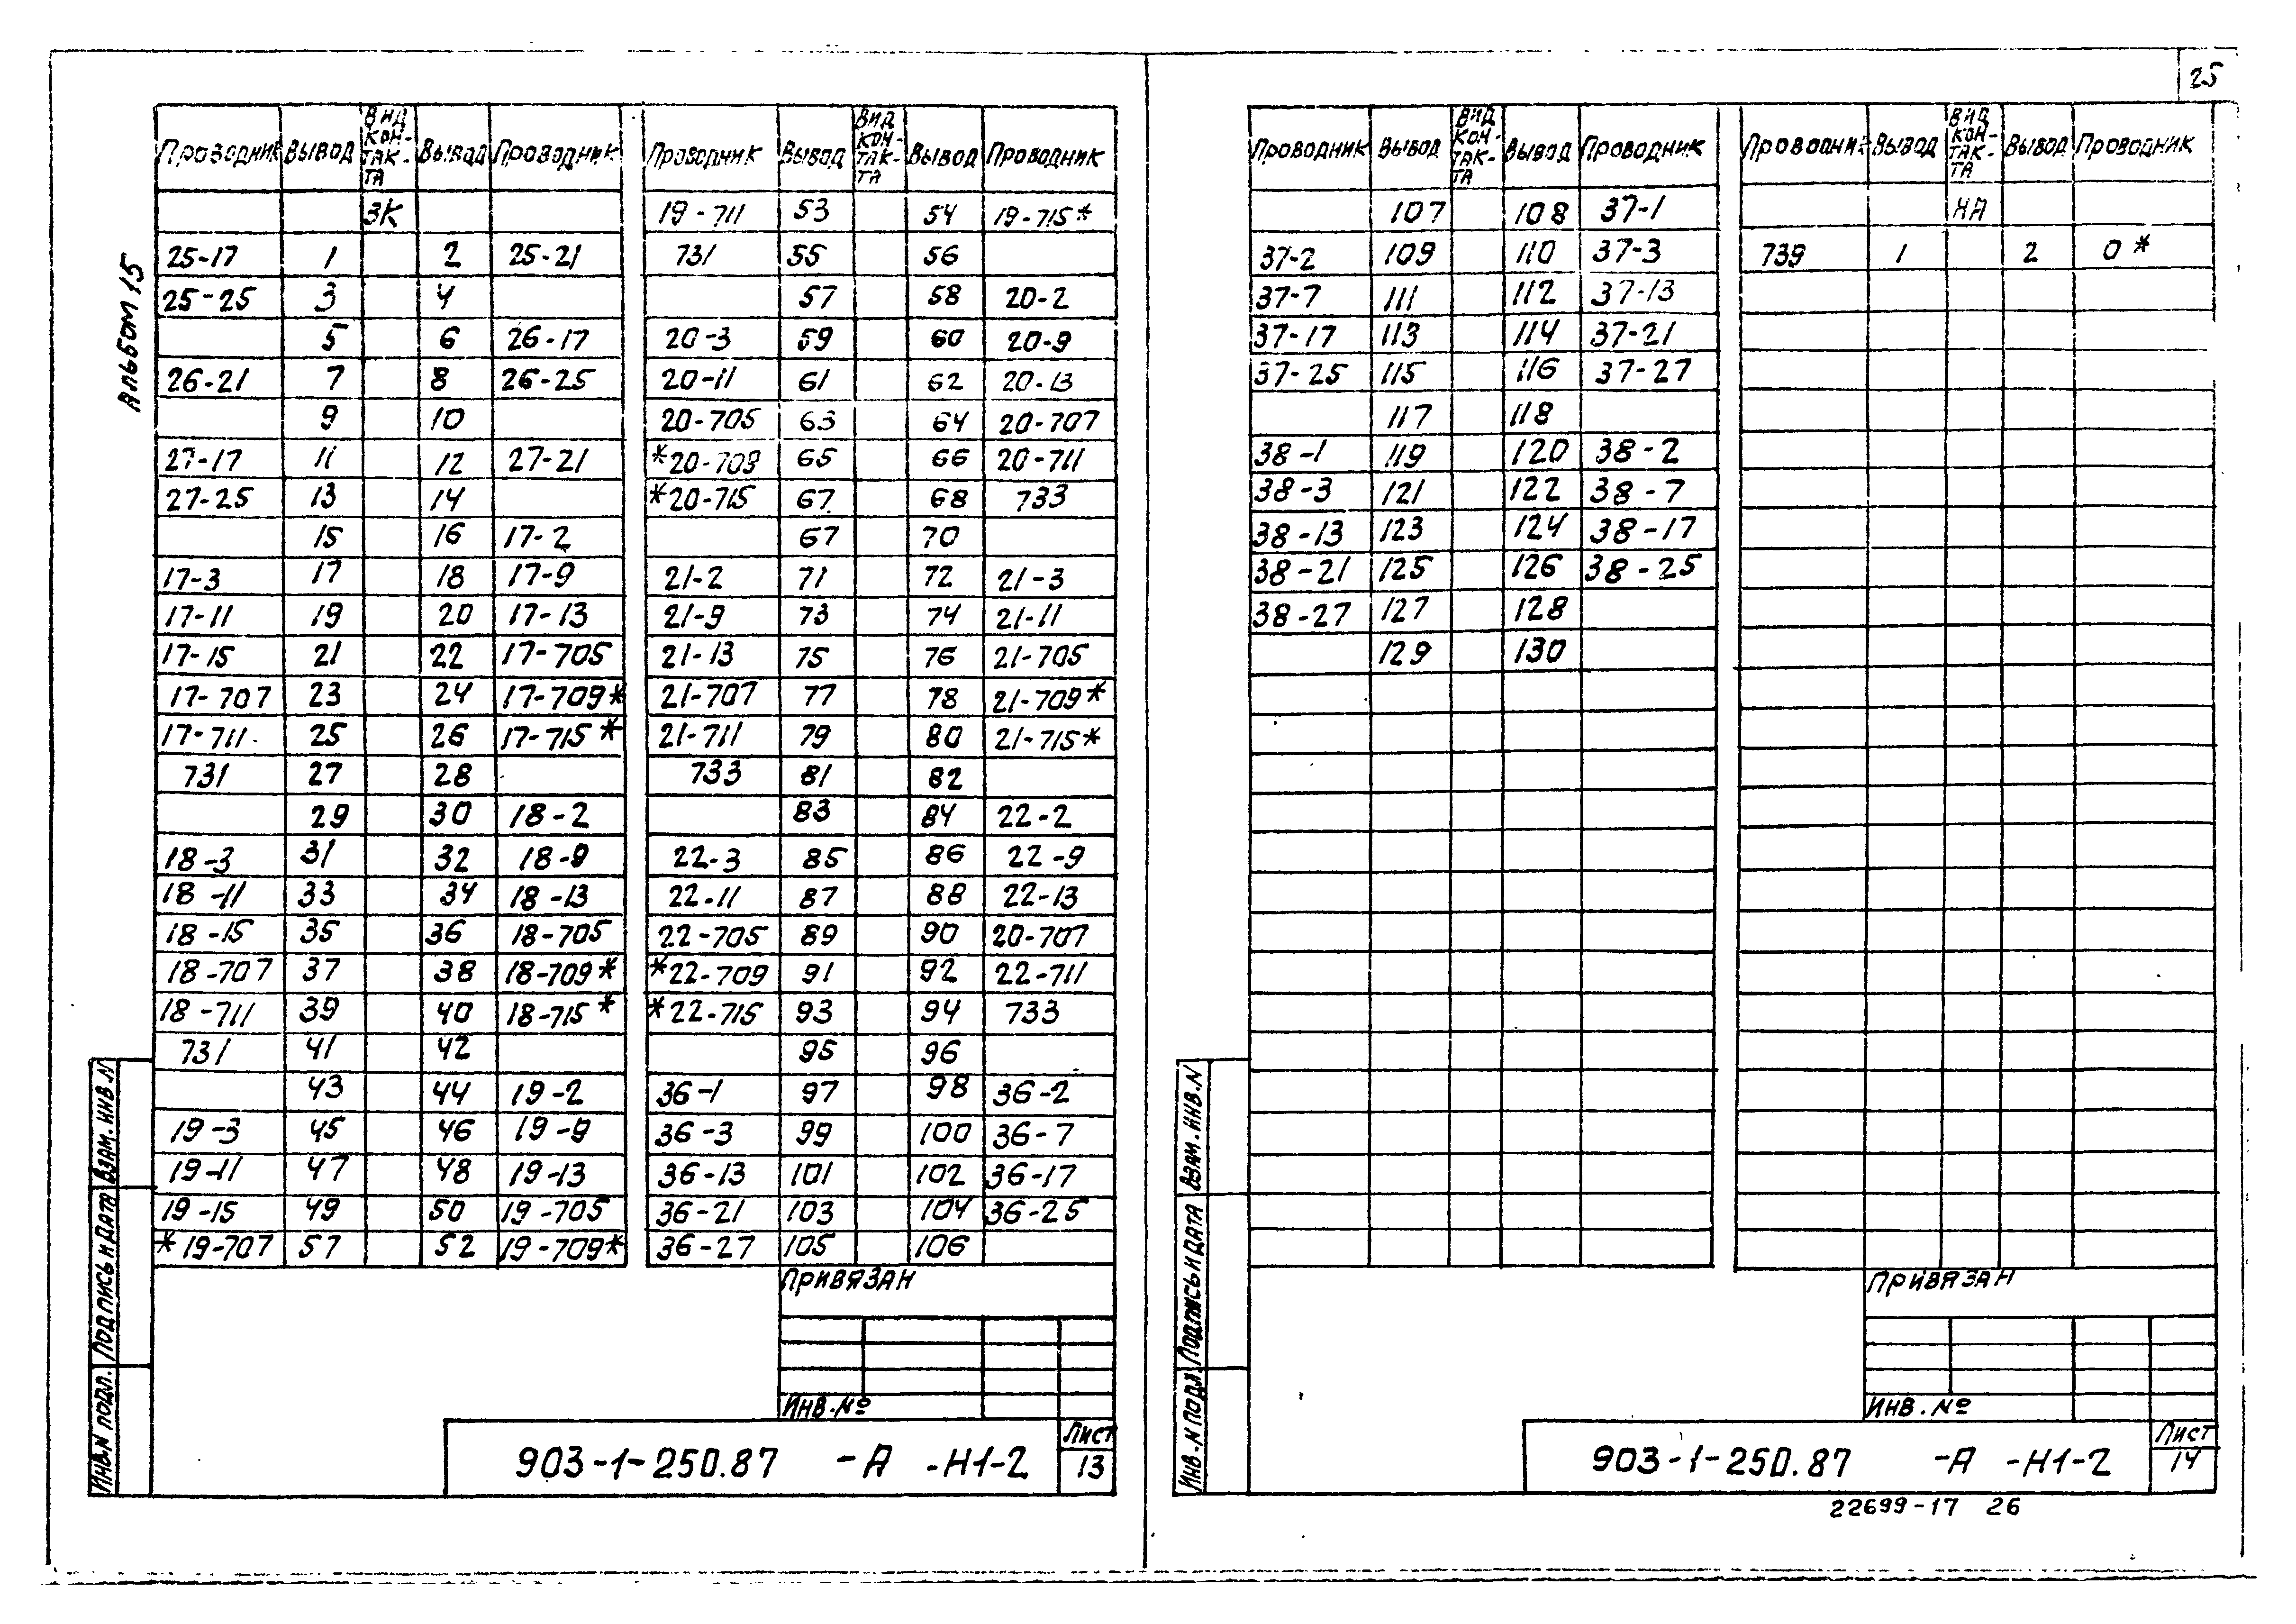 25
АЛЬБОМ 15
Проводник Вывод Вид кон-так-та Вывод Проводник
ЗК
25-17 1 2 25-21
25-25 3 4
5 6 26-17
26-21 7 8 26-25
9 10
27-17 11 12 27-21
27-25 13 14
15 16 17-2
17-3 17 18 17-9
17-11 19 20 17-13
17-15 21 22 17-705
17-707 23 24 17-709*
17-711 25 26 17-715*
731 27 28
29 30 18-2
18-3 31 32 18-9
18-11 33 34 18-13
18-15 35 36 18-705
18-707 37 38 18-709*
18-711 39 40 18-715*
731 41 42
43 44 19-2
19-3 45 46 19-9
19-11 47 48 19-13
19-15 49 50 19-705
*19-707 57 52 19-709*
Проводник Вывод Вид кон-так-та Вывод Проводник
19-711 53 54 19-715*
731 55 56
57 58 20-2
20-3 59 60 20-9
20-11 61 62 20-13
20-705 63 64 20-707
*20-709 65 66 20-711
*20-715 67 68 733
67 70
21-2 71 72 21-3
21-9 73 74 21-11
21-13 75 76 21-705
21-707 77 78 21-709*
21-711 79 80 21-715*
733 81 82
83 84 22-2
22-3 85 86 22-9
22-11 87 88 22-13
22-705 89 90 20-707
*22-709 91 92 22-711
*22-715 93 94 733
95 96
36-1 97 98 36-2
36-3 99 100 36-7
36-13 101 102 36-17
36-21 103 104 36-25
36-27 105 106
Привязан
Инв.№
903-1-250.87 -А -Н1-2
Лист
13
Инв.N подл. Подпись и дата Взам. инв.N
Проводник Вывод Вид кон-так-та Вывод Проводник
107 108 37-1
37-2 109 110 37-3
37-7 111 112 37-13
37-17 113 114 37-21
37-25 115 116 37-27
117 118
38-1 119 120 38-2
38-3 121 122 38-7
38-13 123 124 38-17
38-21 125 126 38-25
38-27 127 128
129 130
Проводник Вывод Вид кон-так-та Вывод Проводник
НА
739 1 2 0*
Привязан
Инв.№
903-1-250.87 -А -Н1-2
Лист
14
Инв.N подл. Подпись и дата Взам. инв.N
22699-17 26